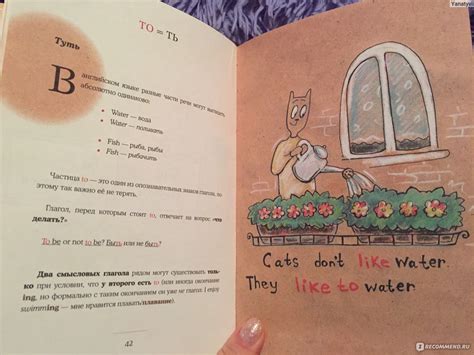 Yanatysi
ТО = ТЬ
Туть
В английском языке разные части речи могут выглядеть
абсолютно одинаково:
• Water — вода
• Water — поливать
• Fish — рыба, рыбы
• Fish — рыбачить
Частица to — это один из опознавательных знаков глагола, по
этому так важно её не терять.
Глагол, перед которым стоит to, отвечает на вопрос «что
делать?»
To be or not to be? Быть или не быть?
Два смысловых глагола рядом могут существовать толь-
ко при условии, что у второго есть to (или иногда окончание
ing, но формально с таким окончанием он уже не глагол: I enjoy
swimming — мне нравится плавать плавание).
42
Cats don't like water.
They like to water
IRECOMMEND.RU